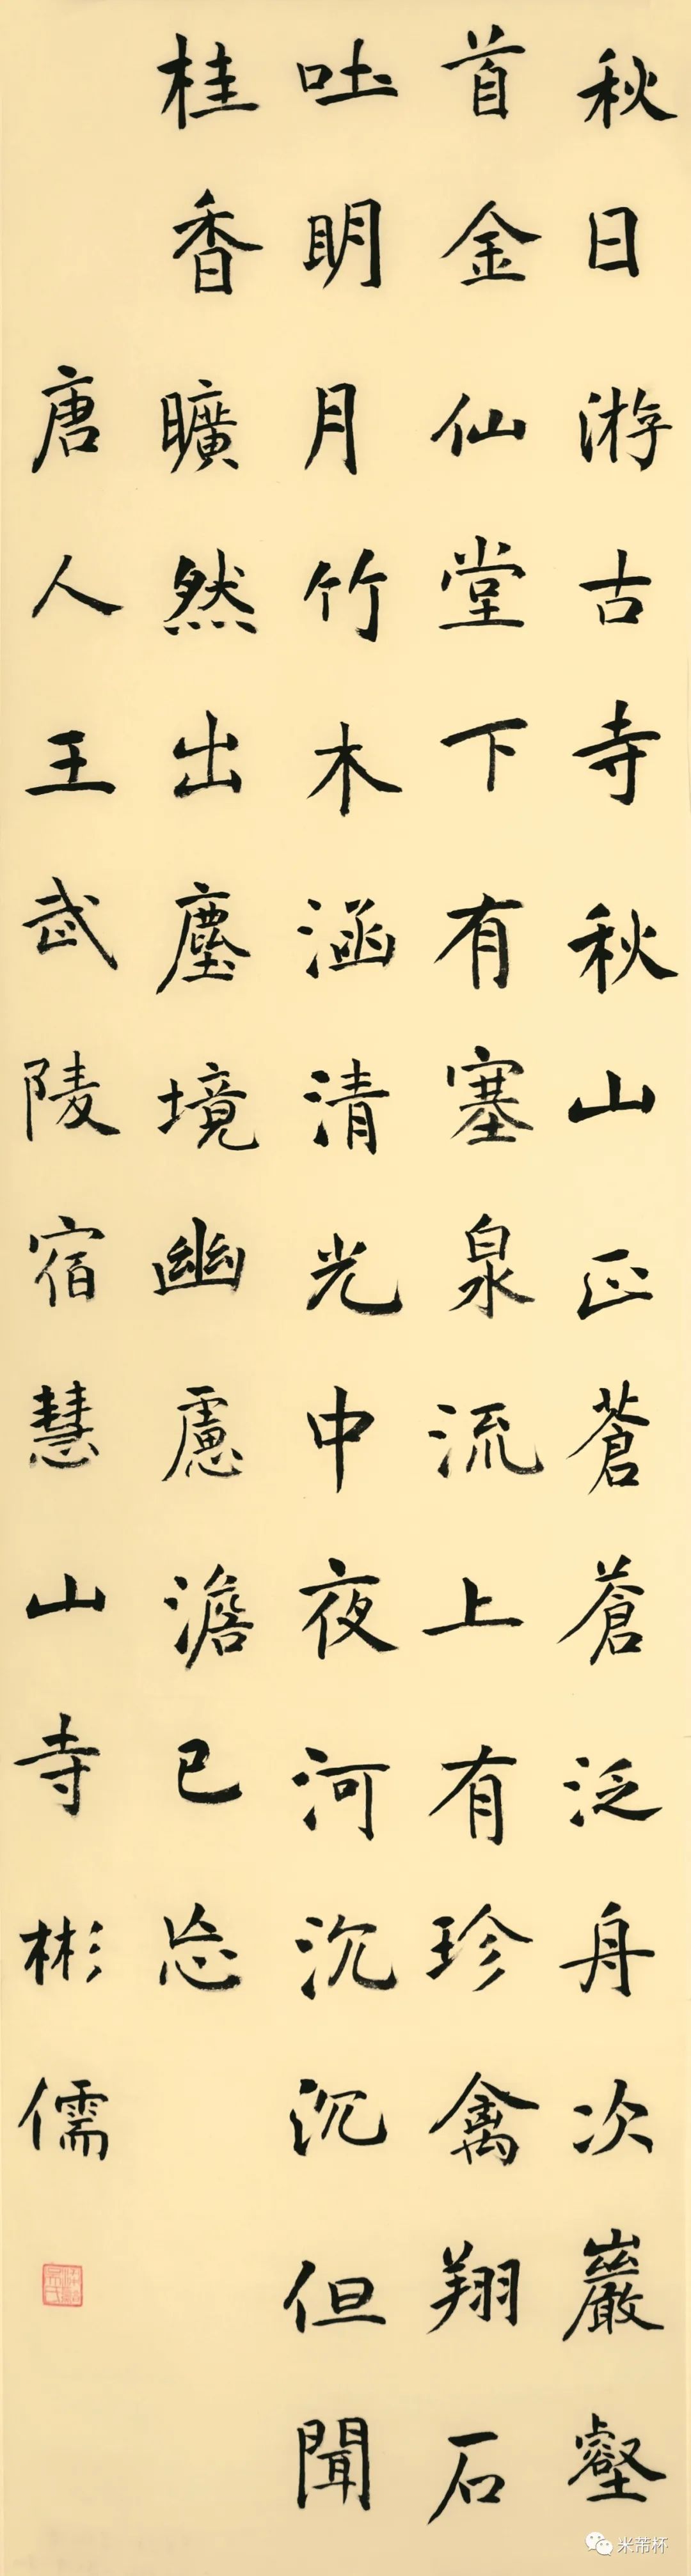 秋日游古寺秋山正蒼蒼泛舟次巖壑
首金仙堂下有塞泉流上有珍禽翔石
吐明月竹木涵清光中夜河沉沉但聞
桂香曠然出塵境幽慮澹已忘
唐人王武陵宿慧山寺彬儒
米芾杯